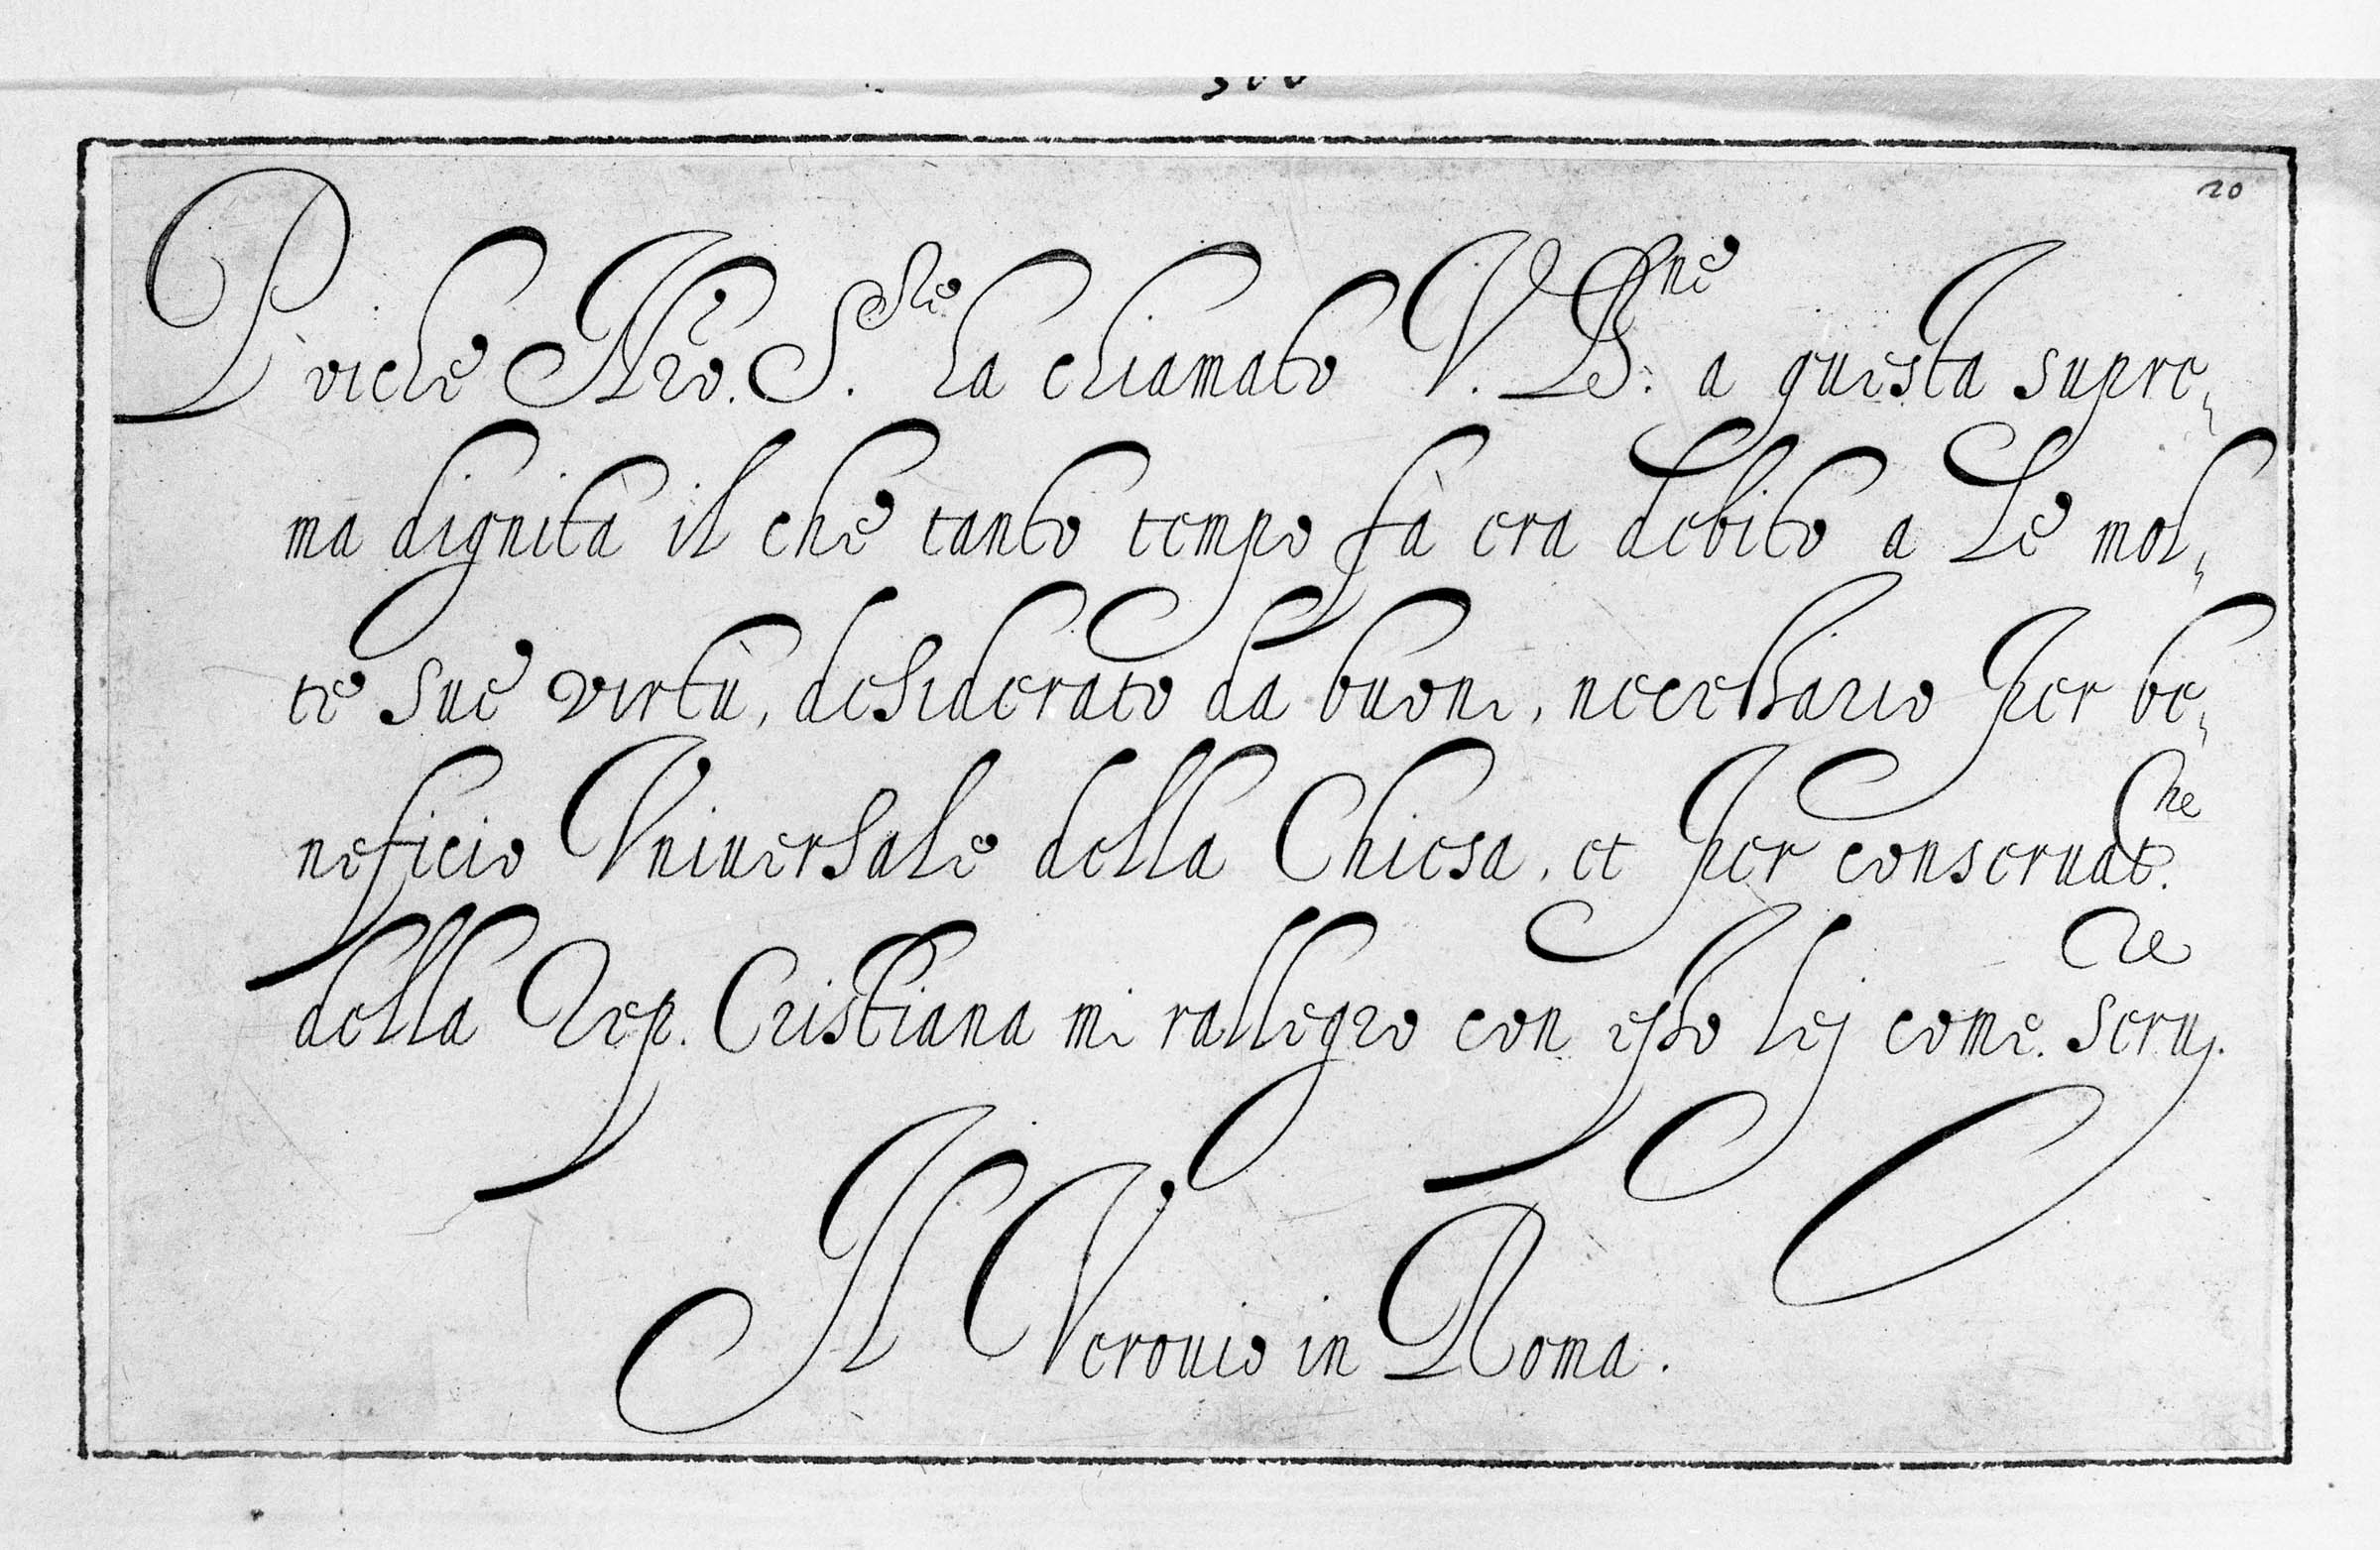 20
Poiche Nro. S.re ha chiamato V. B.ne a questa supre,
ma dignità il che tanto tempo fà era debito a le mol,
te sue virtù, desiderato da buoni, necessario per be,
neficio Vniuersale della Chiesa, et per conseruat.ne
della Rep. Cristiana mi rallegro con esso lej come. seru.re
Il Verouio in Roma.